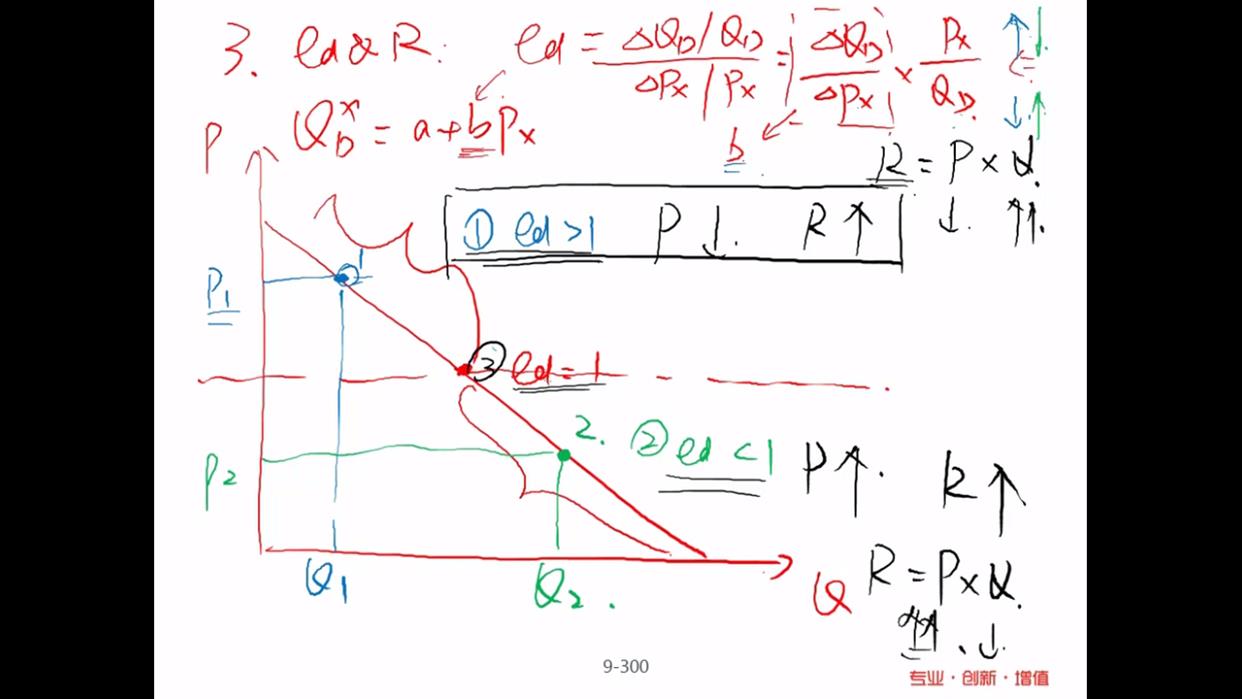 3. ed & R: ed = ΔQD/QD / ΔPx/Px = ΔQD/ΔPx × Px/QD ↑ ↓ = ↓ ↑
QDx = a + bPx b
R = P × Q.
↓. ↑↑.
P
① ed > 1 P ↓. R ↑
1
P1
③ ed = 1
2. ② ed < 1 P ↑. R ↑
P2
Q1 Q2. Q
R = P × Q.
↑↑. ↓.
9-300
专业·创新·增值